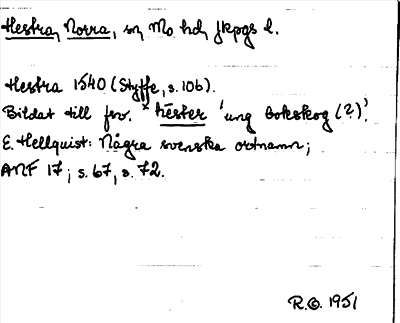 Hestra, Norra, sn, Mo hd, Jkpgs l.
Hestra 1540 (Styffe, s. 106).
Bildat till fsv. *hēster 'ung bokskog (?)'.
E. Hellquist: Några svenska ortnamn;
ANF 17; s. 67, s. 72.
R.G. 1951